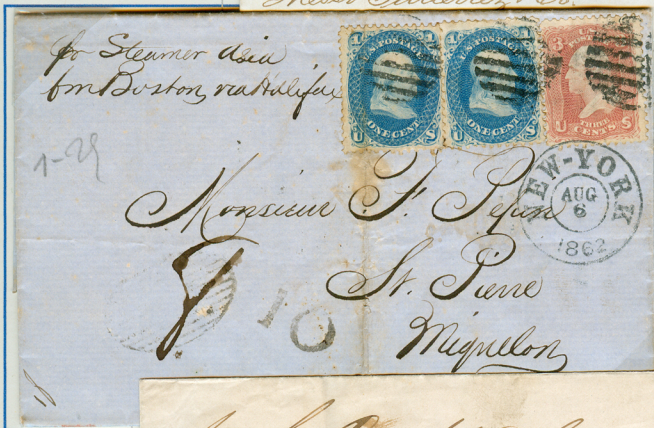 pr Steamer Asia
fm Boston, via Halifax
1 U.S. POSTAGE 1
ONE CENT
U S
1 U.S. POSTAGE 1
ONE CENT
U S
3 U.S. POSTAGE
THREE CENTS
U S
1-29
NEW-YORK
AUG
6
1862
Monsieur F. Pepin
St. Pierre
Miquelon
10